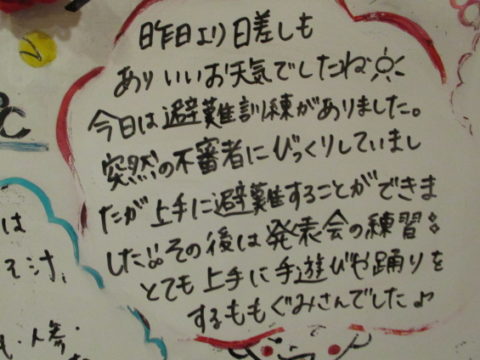 昨日より日差しも
ありいいお天気でしたね☼
今日は避難訓練がありました。
突然の不審者にびっくりしていまし
たが上手に避難することができま
した!! その後は発表会の練習!!
とても上手に手遊びや踊りを
するももぐみさんでした♪
℃
は
そ汁、
・人参・